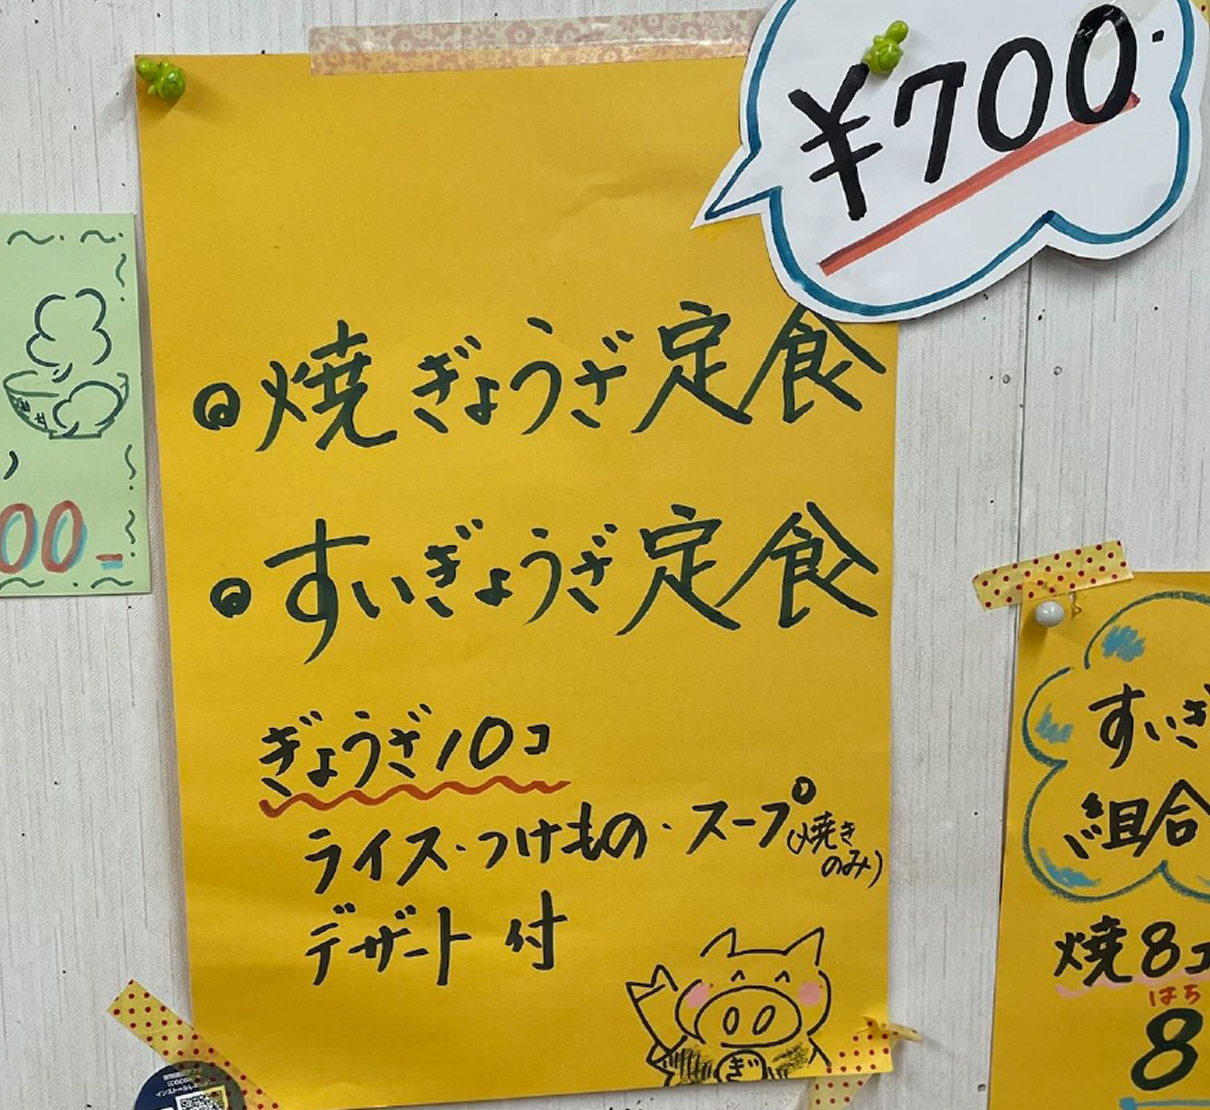 ¥700.
焼ぎょうざ定食
すいぎょうざ定食
ぎょうざ10コ
ライス・つけもの・スープ(焼き
のみ)
デザート付
ぎ
00-
すいぎ
組合
焼8コ
はち
8
インストール